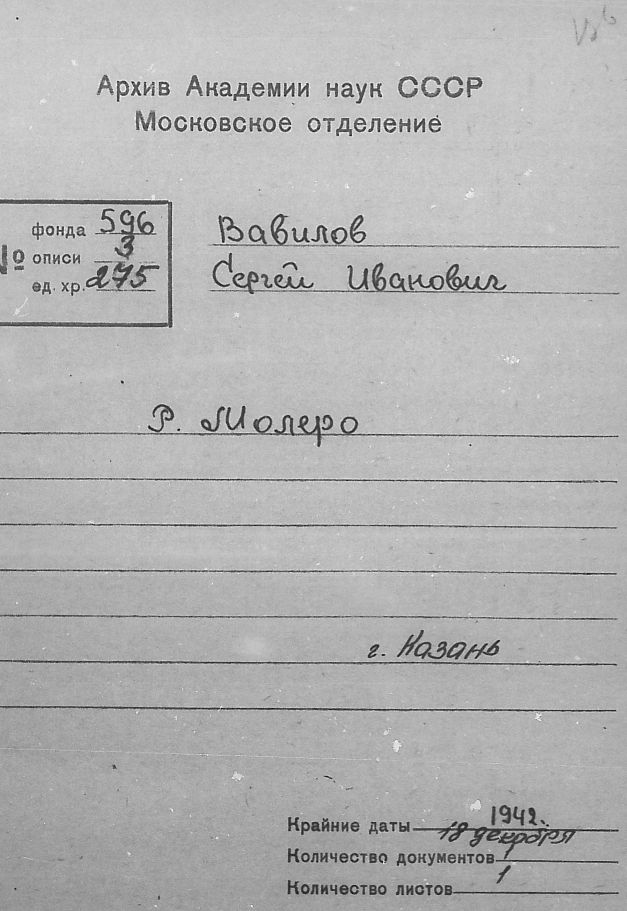 Архив Академии наук СССР
Московское отделение
№
фонда 596
описи 3
ед. хр. 275
Вавилов
Сергей Иванович
Р. Молеро
г. Казань
Крайние даты 1942.
18 декабря
Количество документов 1
Количество листов 1